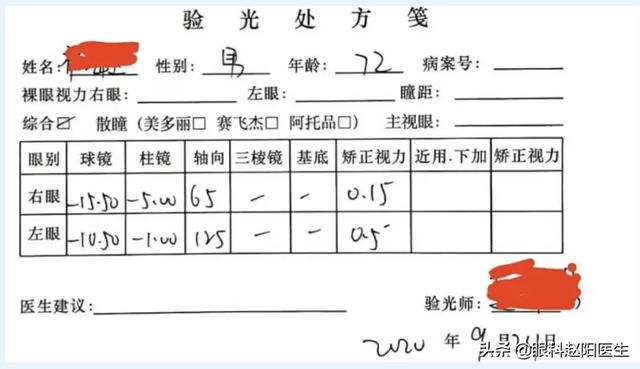 验光处方笺
姓名: 性别: 男 年龄: 72 病案号:
裸眼视力右眼: 左眼: 瞳距:
综合☑ 散瞳 (美多丽□ 赛飞杰□ 阿托品□) 主视眼:
眼别 球镜 柱镜 轴向 三棱镜 基底 矫正视力 近用.下加 矫正视力
右眼 -15.50 -5.00 65 — — 0.15
左眼 -10.50 -1.00 125 — — 0.5
医生建议:
验光师:
2020 年 9 月 日
头条 @眼科赵阳医生